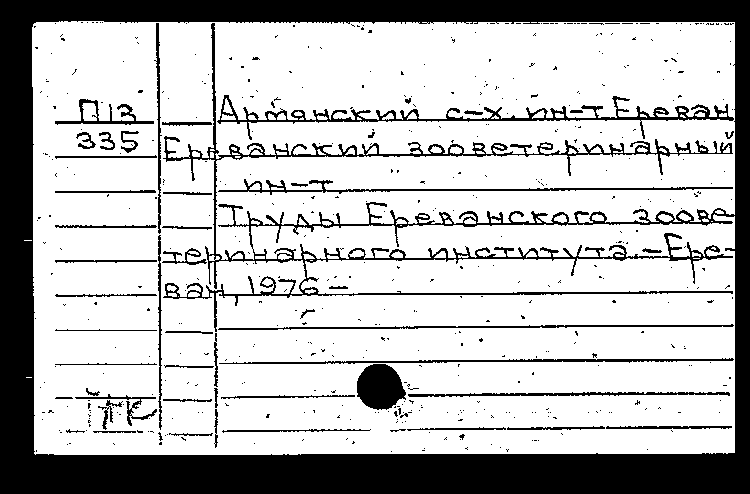 П13 Армянский с-х. ин-т Ереван
335 Ереванский зооветеринарный
ин-т.
Труды Ереванского зоове-
теринарного института.-Ере-
ван, 1976-